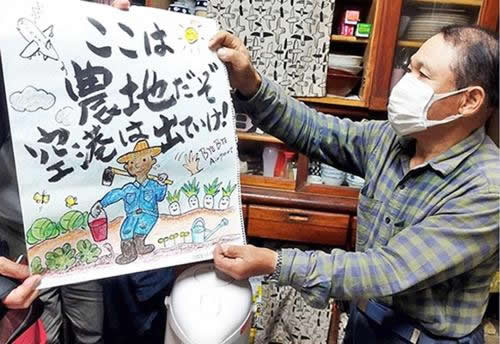 ここは
農地だぞ
空港は出ていけ!
Bye Bye